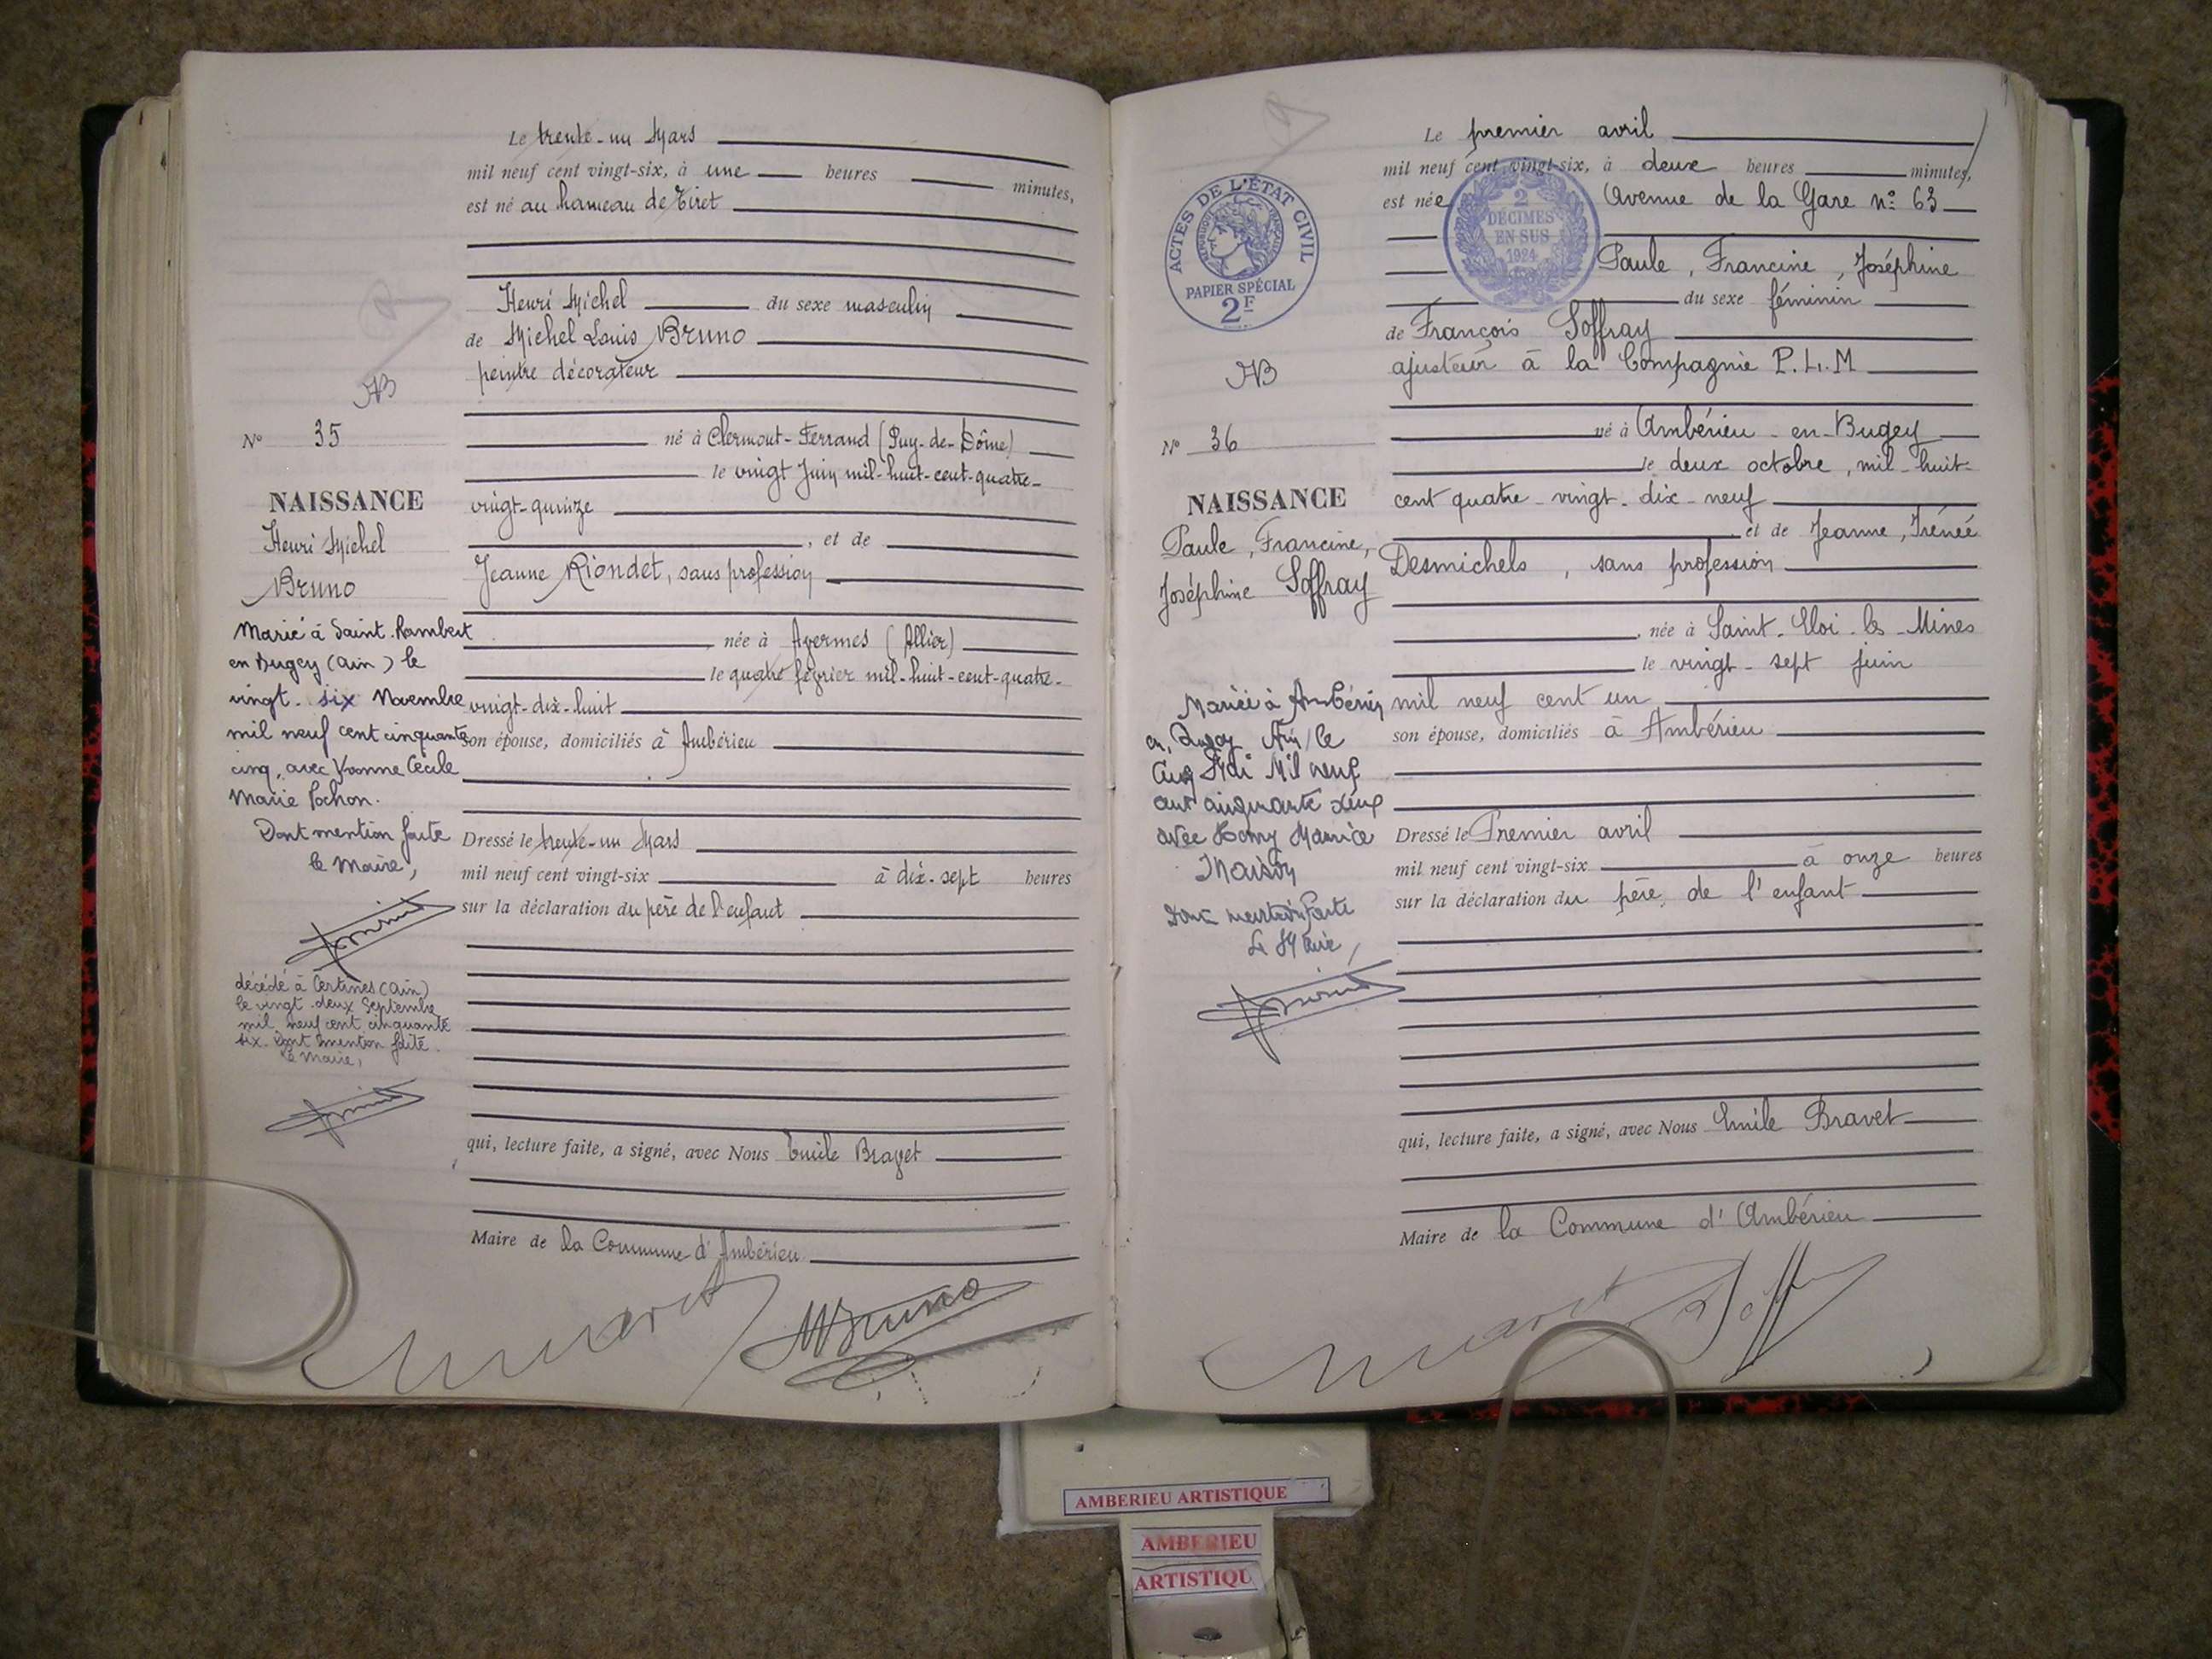 Le trente-un Mars
mil neuf cent vingt-six, à une heures minutes,
est né au hameau de Tiret
Henri Michel du sexe masculin
de Michel Louis Bruno
peintre décorateur
AB
N° 35
né à Clermont-Ferrand (Puy-de-Dôme)
le vingt Juin mil-huit-cent-quatre-
vingt-quinze
, et de
Jeanne Riondet, sans profession
née à Avermes (Allier)
le quatre février mil-huit-cent-quatre-
vingt-dix-huit
son épouse, domiciliés à Ambérieu
Dressé le trente-un Mars
mil neuf cent vingt-six à dix-sept heures
sur la déclaration du père de l'enfant
qui, lecture faite, a signé, avec Nous Emile Bravet
Maire de la Commune d'Ambérieu
MBruno
NAISSANCE
Henri Michel
Bruno
Marié à Saint-Rambert
en Bugey (Ain) le
vingt-six Novembre
mil neuf cent cinquante
cinq, avec Yvonne Cécile
Marie Pochon.
Dont mention faite
le Maire,
décédé à Certines (Ain)
le vingt-deux Septembre
mil neuf cent cinquante
six. Dont mention faite.
le Maire,
Le premier avril
mil neuf cent vingt-six, à deux heures minutes,
est née Avenue de la Gare n° 63
Paule, Francine, Joséphine
du sexe féminin
de François Soffray
ajusteur à la Compagnie P.L.M
né à Ambérieu-en-Bugey
le deux octobre, mil-huit-
cent quatre-vingt-dix-neuf
et de Jeanne, Irénée
Desmichels, sans profession
, née à Saint-Eloi-les-Mines
le vingt-sept juin
mil neuf cent un
son épouse, domiciliés à Ambérieu
Dressé le Premier avril
mil neuf cent vingt-six à onze heures
sur la déclaration du père, de l'enfant
qui, lecture faite, a signé, avec Nous Emile Bravet
Maire de la Commune d'Ambérieu
ACTES DE L'ÉTAT CIVIL
RÉPUBLIQUE FRANÇAISE
PAPIER SPÉCIAL
2F
2
DÉCIMES
EN SUS
1924
AB
N° 36
NAISSANCE
Paule, Francine,
Joséphine Soffray
Mariée à Ambérieu
en Bugey Ain le
Cinq Mai Mil neuf
cent cinquante deux
avec Maurice
Dont mention faite
Le Maire,
AMBERIEU ARTISTIQUE
AMBERIEU
ARTISTIQU